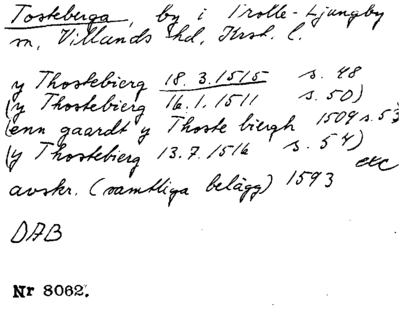 Tosteberga, by i Trolle-Ljungby
sn, Villands hd, Krist. l.
y Thostebierg 18.3.1515 s. 48
(y Thostebierg 16.1.1511 s. 50)
(enn gaardt y Thoste biergh 1509 s. 53
(y Thostebierg 13.7.1516 s. 54)
etc
avskr. (samtliga belägg) 1593
DAB
Nr 8062.